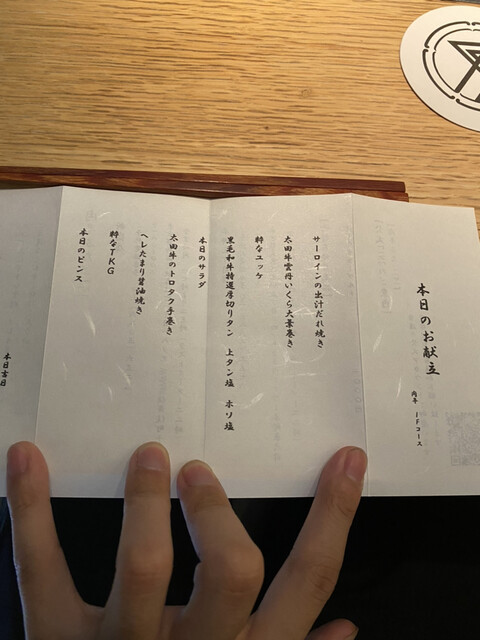 本日のお献立
肉牛 1Fコース
サーロインの出汁だれ焼き
太田牛雲丹いくら大葉巻き
粋なユッケ
黒毛和牛特選厚切りタン 上タン塩 ホソ塩
本日のサラダ
太田牛のトロタク手巻き
ヘレたまり醤油焼き
粋なTKG
本日のビンス
本日吉日